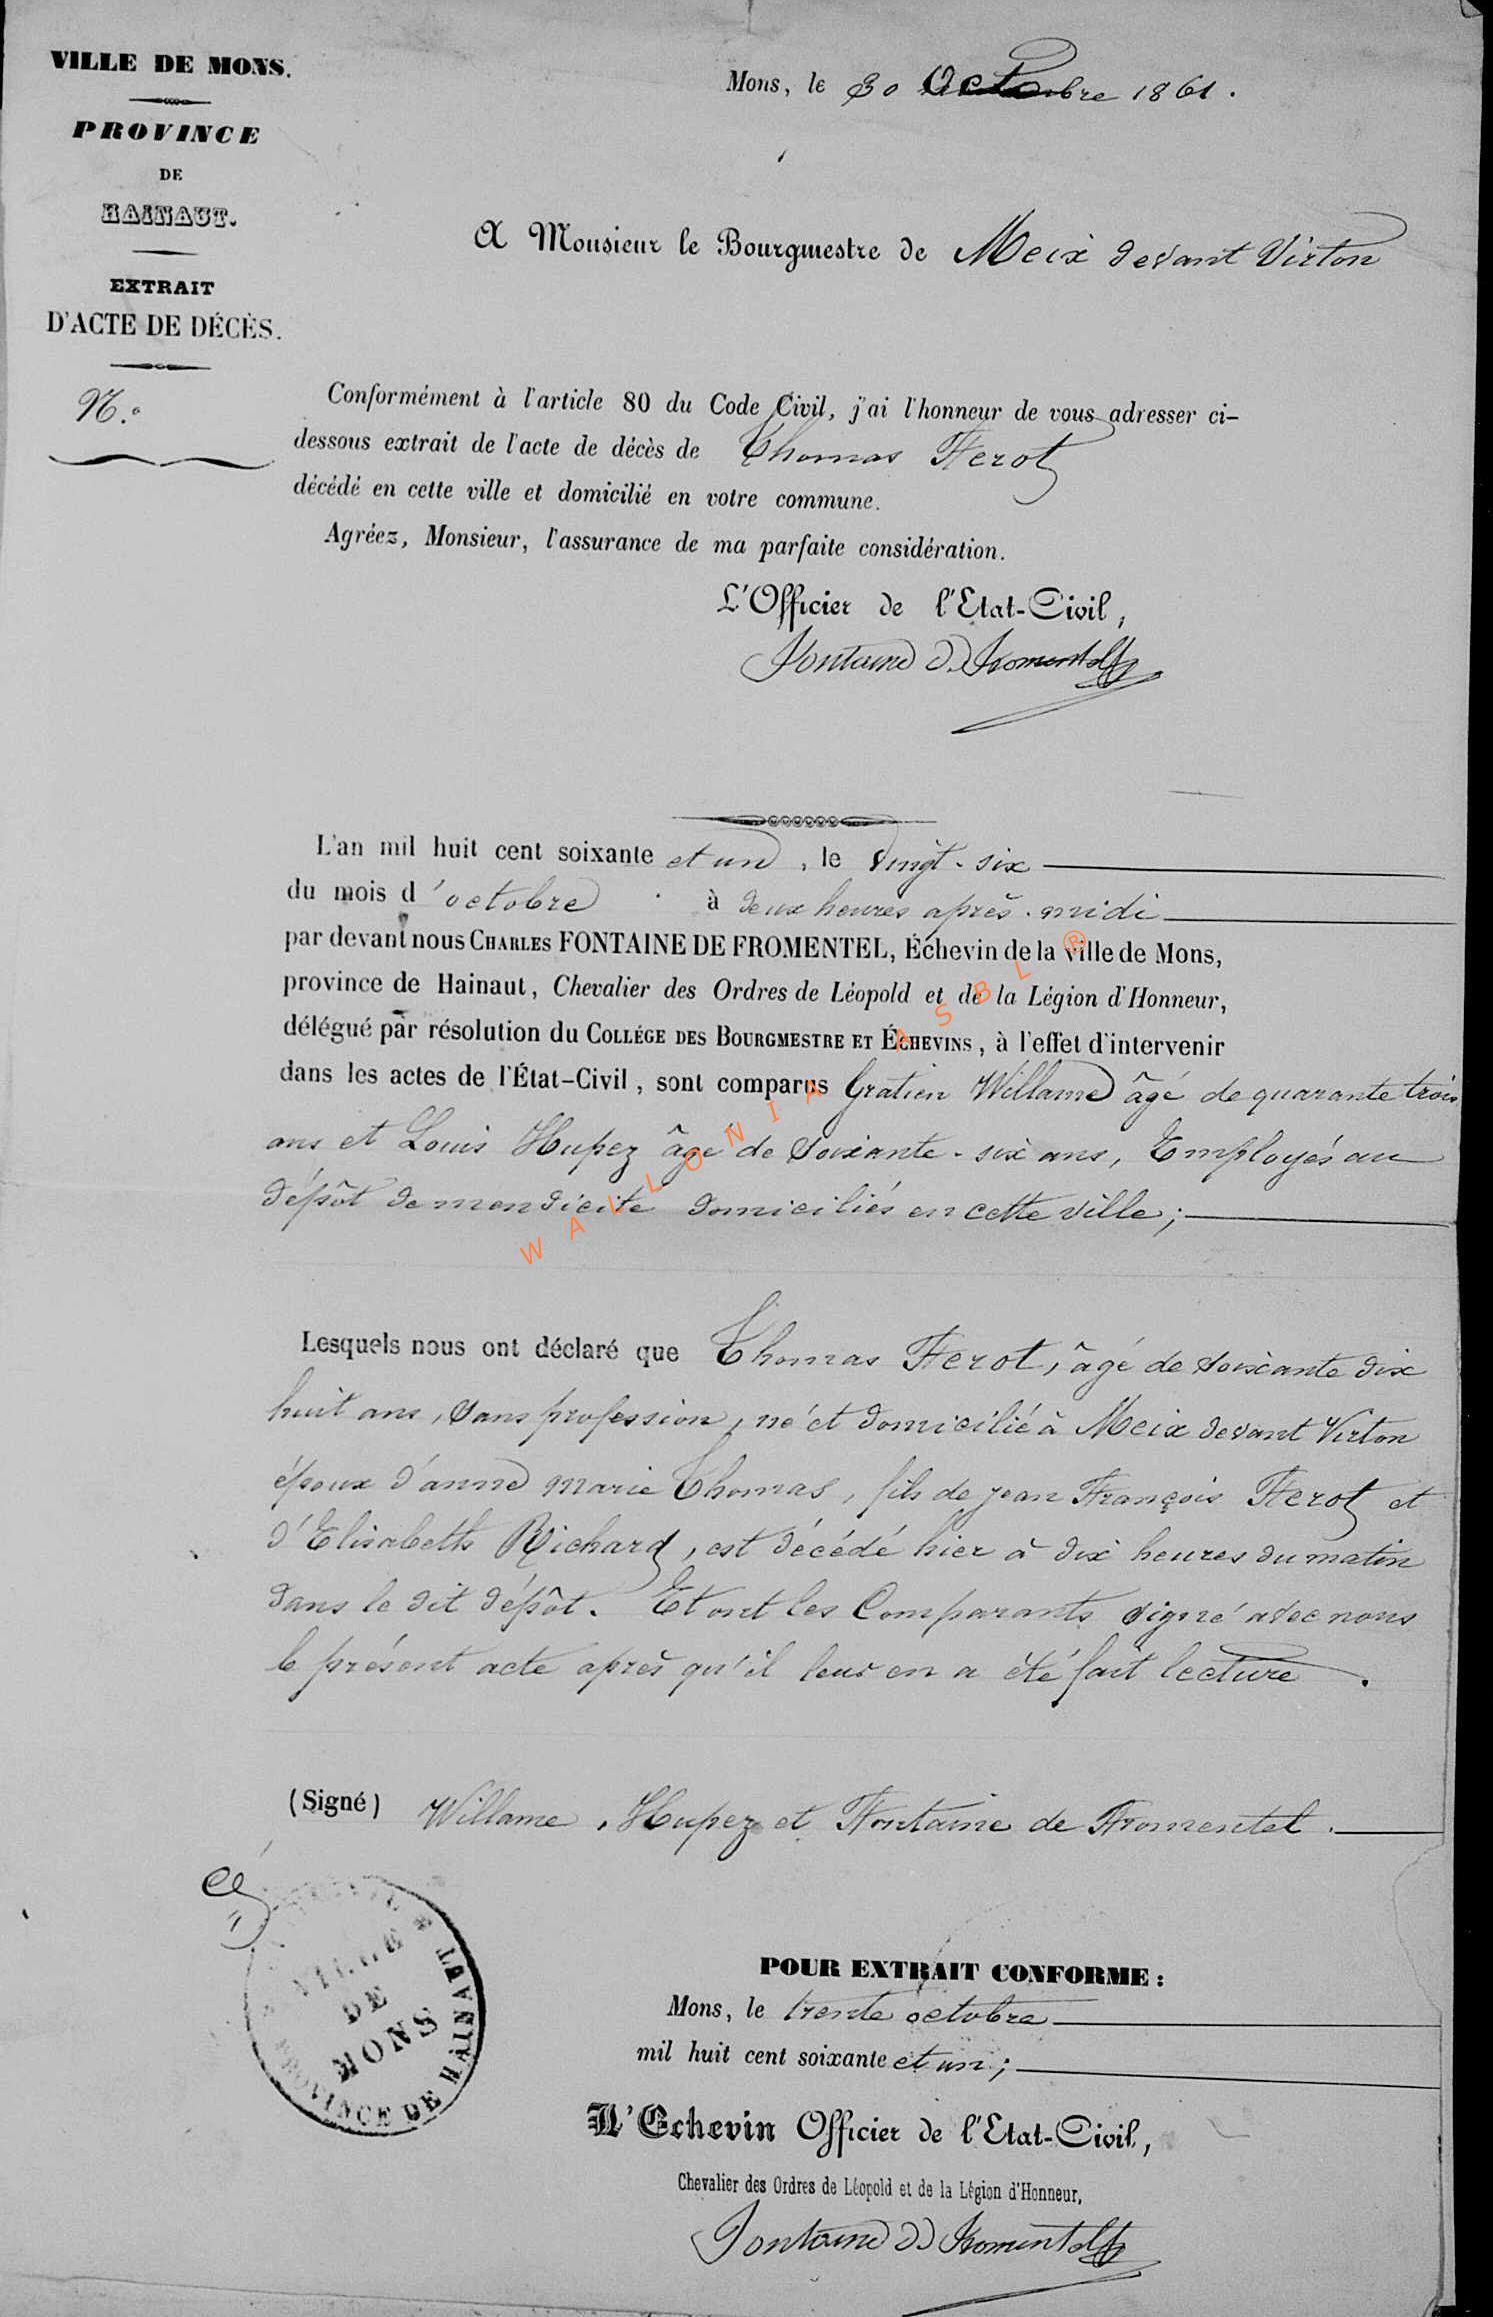 VILLE DE MONS.
PROVINCE
DE
HAINAUT.
EXTRAIT
D'ACTE DE DÉCÈS.
N.º
Mons, le 30 Octobre 1861.
A Monsieur le Bourgmestre de Meix devant Virton
Conformément à l'article 80 du Code Civil, j'ai l'honneur de vous adresser ci-
dessous extrait de l'acte de décès de Thomas Ferot
décédé en cette ville et domicilié en votre commune.
Agréez, Monsieur, l'assurance de ma parfaite considération.
L'Officier de l'Etat-Civil,
Fontaine D Fromentel
L'an mil huit cent soixante et un, le vingt-six
du mois d'octobre à deux heures après-midi
par devant nous CHARLES FONTAINE DE FROMENTEL, Échevin de la ville de Mons,
province de Hainaut, Chevalier des Ordres de Léopold et de la Légion d'Honneur,
délégué par résolution du COLLÉGE DES BOURGMESTRE ET ÉCHEVINS, à l'effet d'intervenir
dans les actes de l'État-Civil, sont comparus Gratien Willame âgé de quarante trois
ans et Louis Hupez âgé de soixante-six ans, Employés au
dépôt de mendicité domiciliés en cette ville;
WALLONIA ASBL ®
Lesquels nous ont déclaré que Thomas Ferot, âgé de soixante dix
huit ans, sans profession, né et domicilié à Meix devant Virton
époux d'anne marie Thomas, fils de jean François Ferot et
d'Elisabeth Richard, est décédé hier à dix heures du matin
dans le dit dépôt. Et ont les Comparants signé avec nous
le présent acte après qu'il leur en a été fait lecture.
(Signé) Willame, Hupez et Fontaine de Fromentel.
VILLE
DE
MONS
PROVINCE DE HAINAUT
POUR EXTRAIT CONFORME:
Mons, le trente octobre
mil huit cent soixante et un;
L'Echevin Officier de l'Etat-Civil,
Chevalier des Ordres de Léopold et de la Légion d'Honneur,
Fontaine D Fromentel